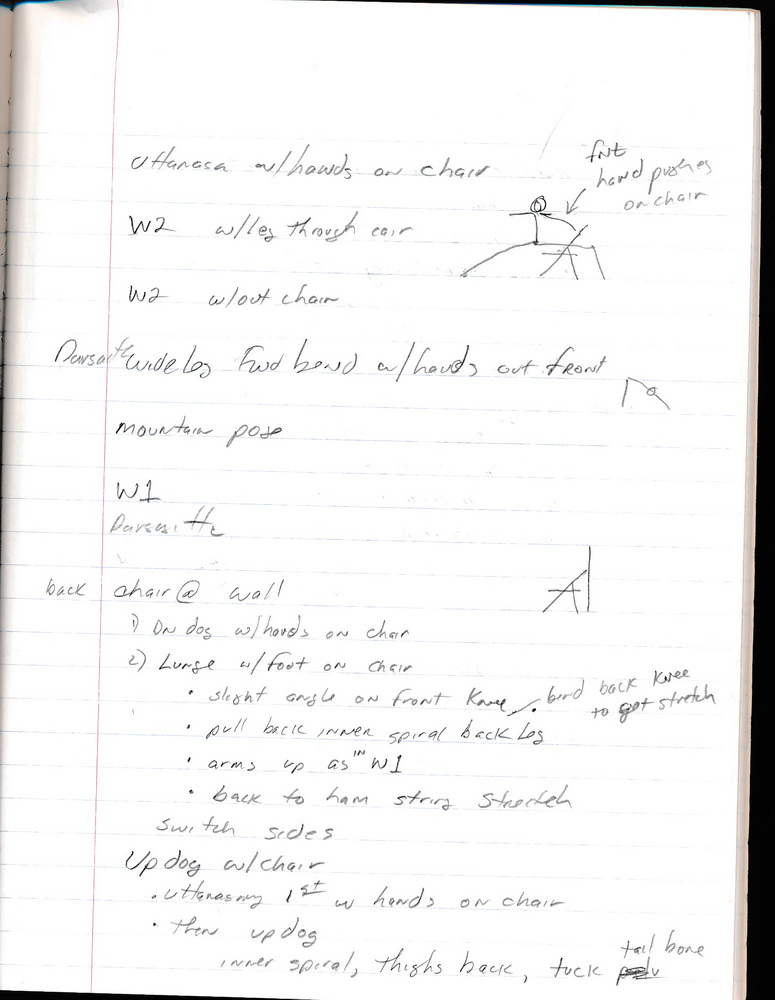 Uttanasa w/hands on chair
fnt
hand pushes
on chair
W2 w/leg through cair
W2 w/out chair
wide leg Fwd bend w/hands out front
mountain pose
W1
back chair @ wall
1) Dn dog w/hands on chair
2) Lunge w/foot on chair
• slight angle on front Knee • bend back Knee
to get stretch
• pull back inner spiral back leg
• arms up as in W1
• back to ham string stretch
switch sides
Up dog w/chair
• 1st w hands on chair
• then up dog
inner spiral, thighs back, tuck tail bone